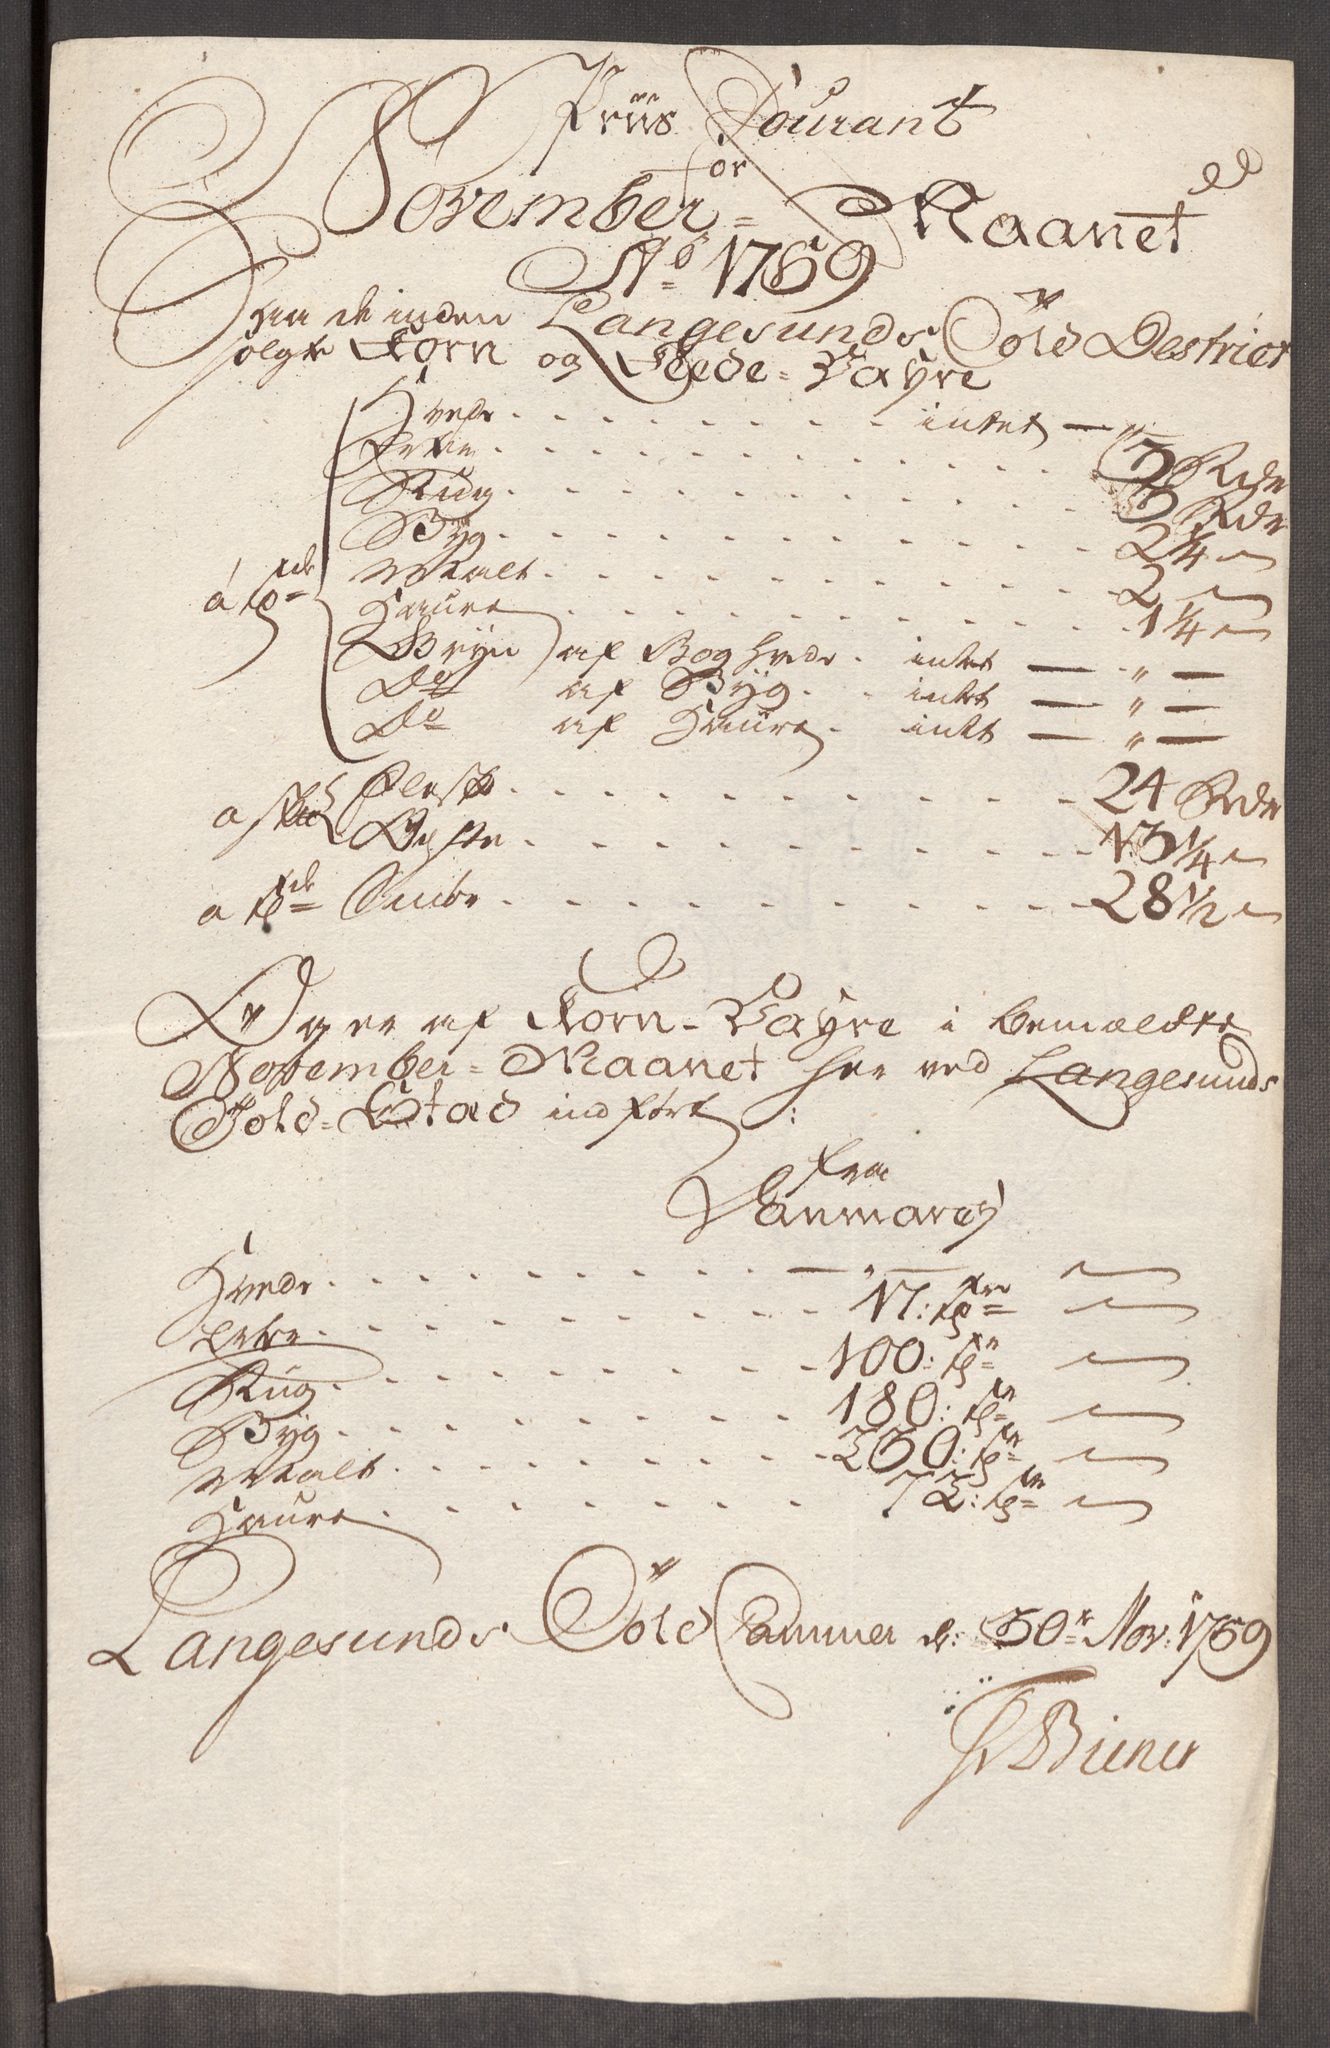 Priis Courant
for
November = Maanet
Ao 1769
Paa de inden Langesunds Told Destrict
solgte Korn og Feede = Vahre
Hvede . . . . . . intet — " —
Erter . . . . . . 3 Rdr
Rug . . . . . . 3 Rdr
Byg . . . . . . 2 1/4 "
Malt . . . . . . 2 "
á Tde Haure . . . . . . 1 1/4 "
Gryn af Boghvede . intet — " —
Do af Byg . . intet — " —
Do af Haure . intet — " —
Flesk . . . . . . 24 Rdr
Oxe . . . . . . 13 1/4 "
a Tde Smör . . . . . . 28 1/2 "
Og er af Korn = Vahre i bemeldte
November = Maanet her ved Langesunds
Told = Stad indført :
fra
Danmarck
Hvede . . . . . . — " —
Erter . . . . . . 17: Tdr
Rug . . . . . . 100: Tdr
Byg . . . . . . 180: Tdr
Malt . . . . . . 230: Tdr
Haure . . . . . . 72: Tdr
Langesunds Told Cammer d: 30te Nov: 1769
Biener